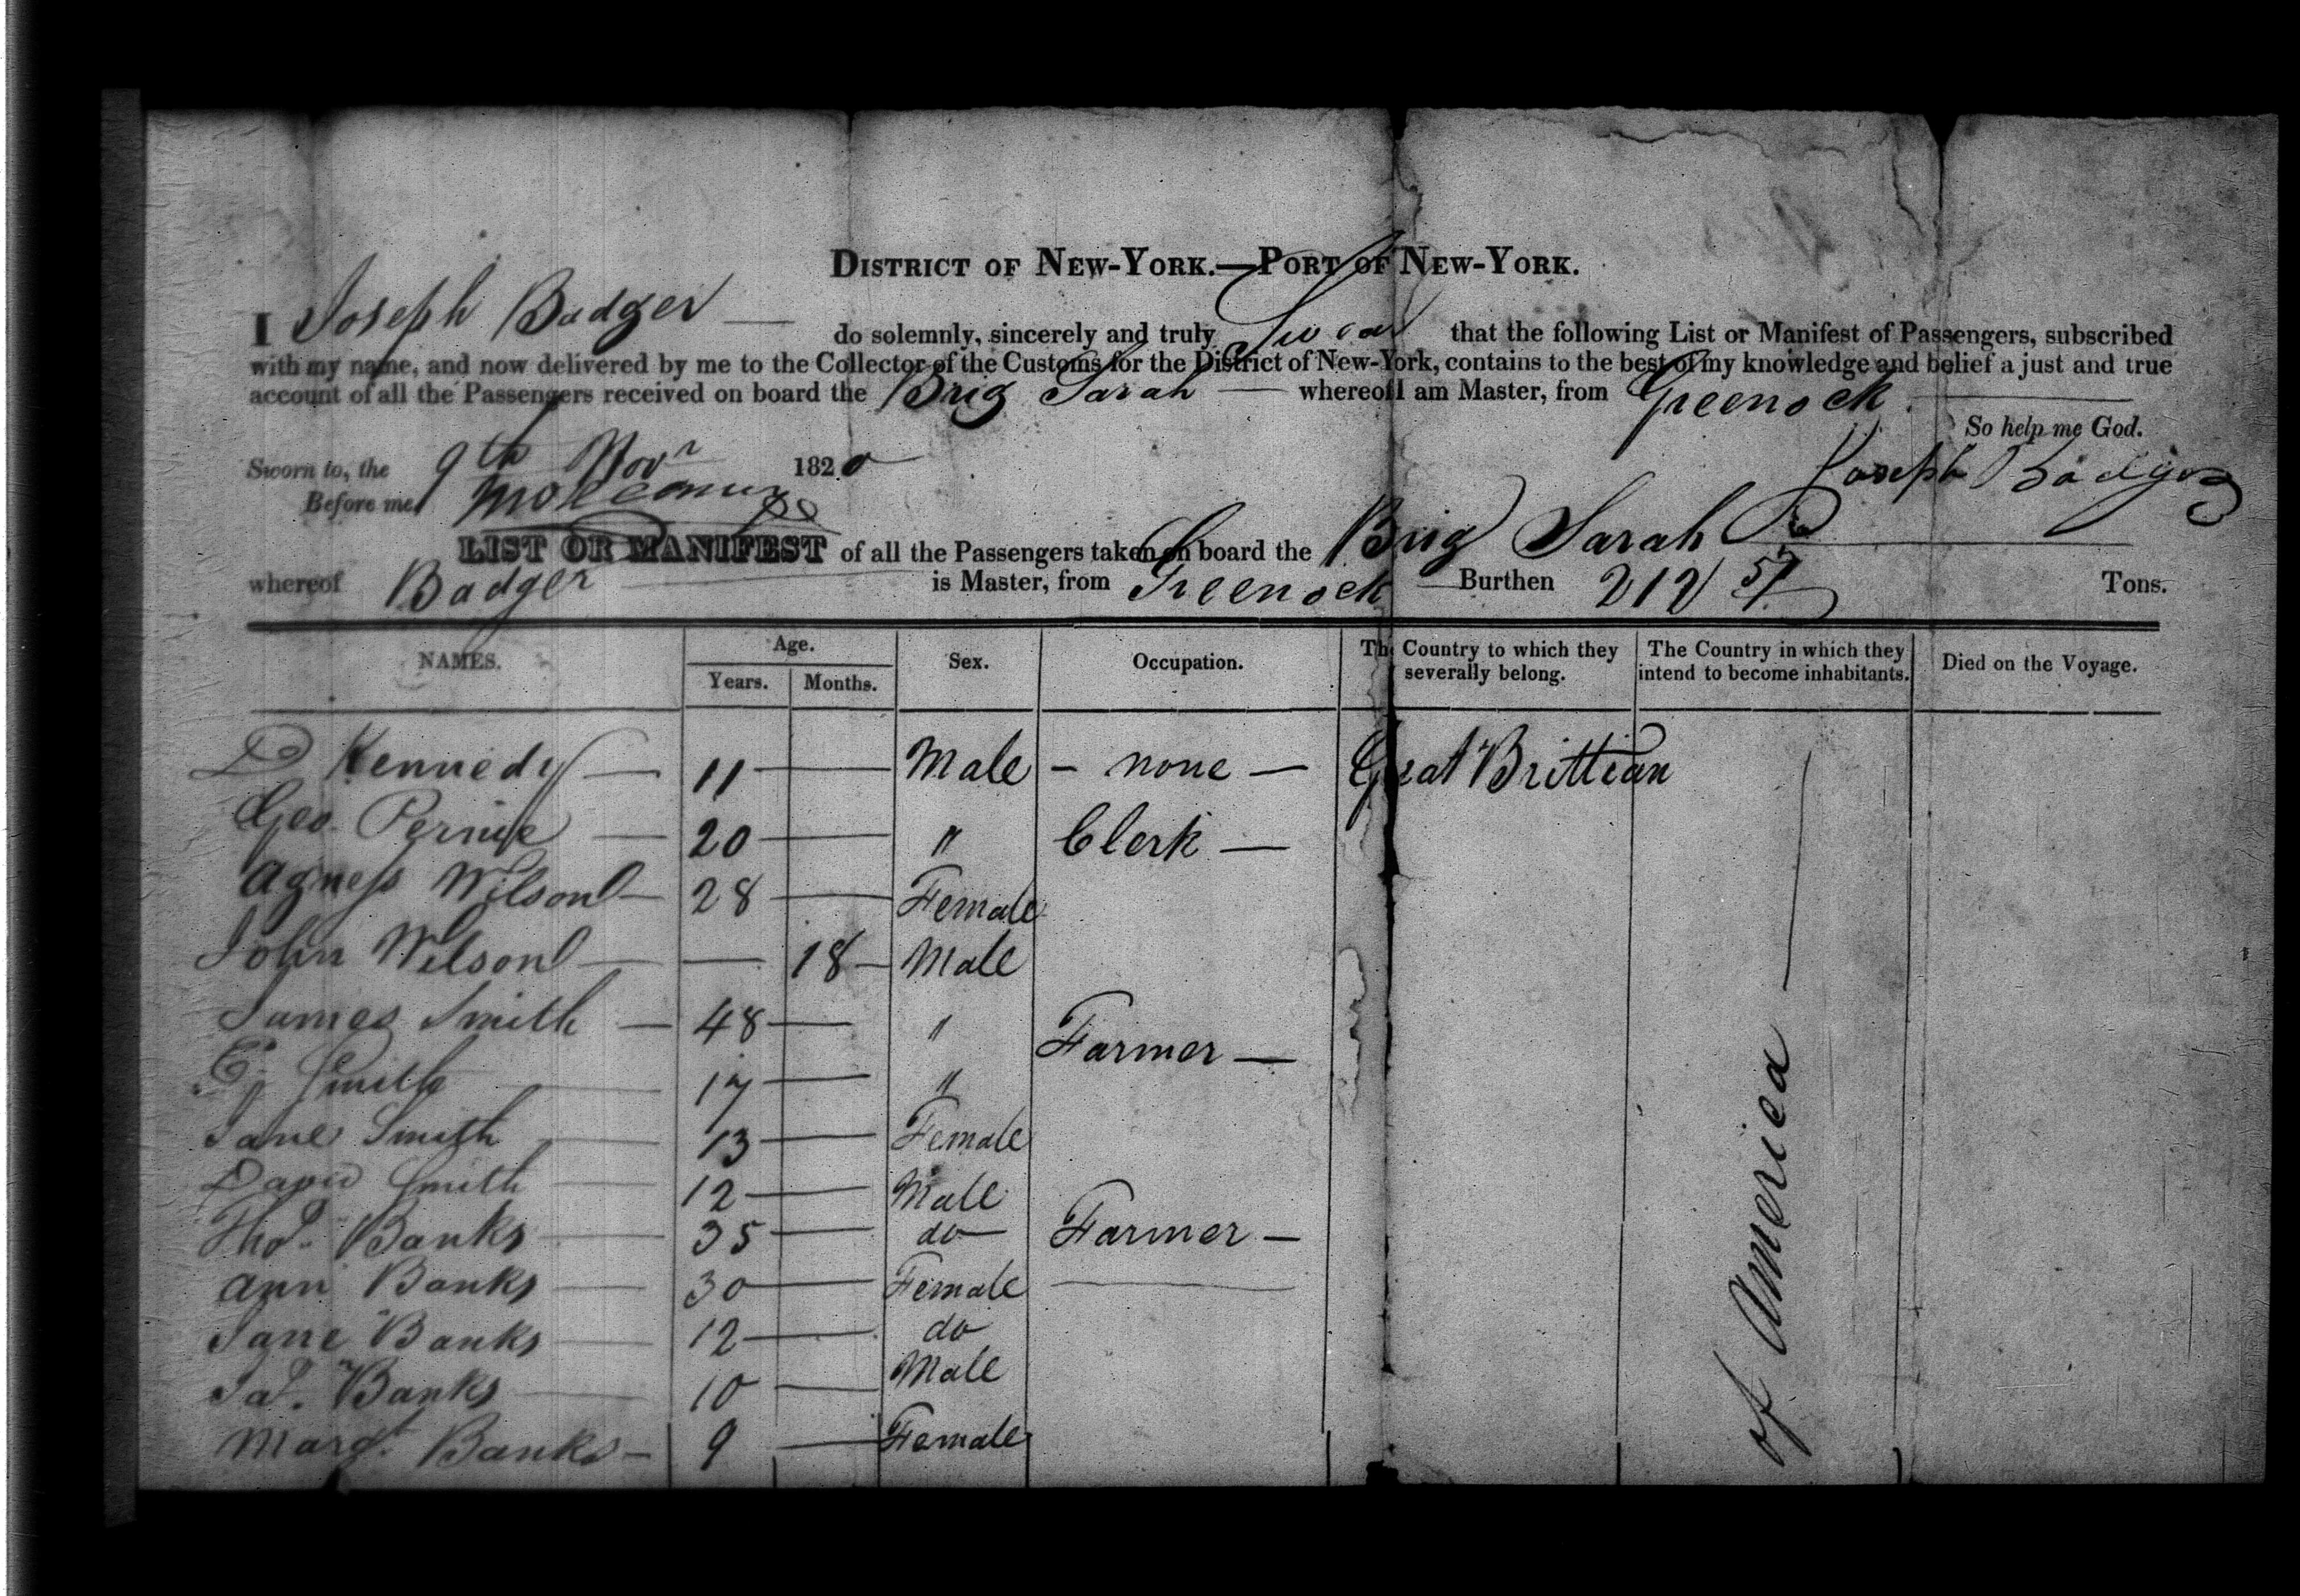 DISTRICT OF NEW-YORK.—PORT OF NEW-YORK.
I Joseph Badger — do solemnly, sincerely and truly Swear that the following List or Manifest of Passengers, subscribed
with my name, and now delivered by me to the Collector of the Customs for the District of New-York, contains to the best of my knowledge and belief a just and true
account of all the Passengers received on board the Brig Sarah — whereof I am Master, from Greenock.
So help me God.
Sworn to, the 9th Novr 1820
Joseph Badger
Before me
LIST OR MANIFEST of all the Passengers taken on board the Brig Sarah
whereof Badger is Master, from Greenock Burthen 212 Tons.
NAMES. Age. Years. Months. Sex. Occupation. The Country to which they severally belong. The Country in which they intend to become inhabitants. Died on the Voyage.
D Kennedy — 11 — Male — none — Great Brittian
Geo. — 20 — " Clerk —
Agness Wilson — 28 — Female
John Wilson — — 18 — Male
James Smith — 48 — " Farmer —
Smith — 17 — "
Jane Smith — 13 — Female
David Smith — 12 — Male
Thos. Banks — 35 — do Farmer —
Ann Banks — 30 — Female —
Jane Banks — 12 — do
Jas. Banks — 10 — Male
Margt. Banks — 9 — Female
of America —